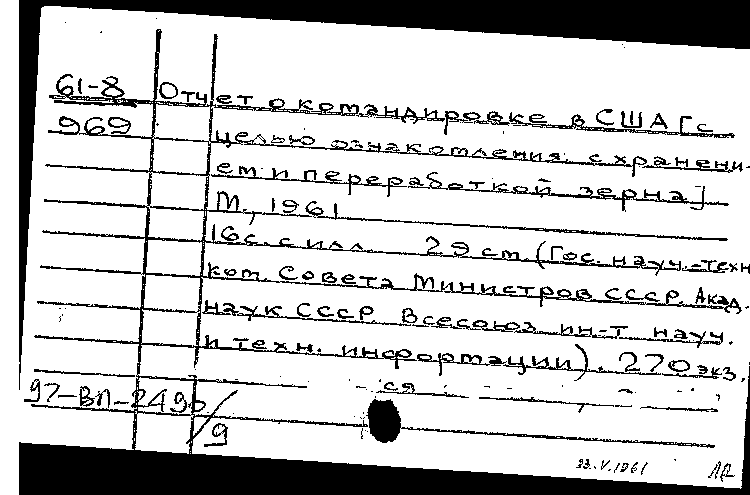 61-8 Отчет о командировке в США [с
969 целью ознакомления с хранени-
ем и переработкой зерна]
М., 1961
16 с. с илл. 29 см. (Гос. науч.-техн.
ком. Совета Министров СССР. Акад.
наук СССР. Всесоюз. ин-т науч.
и техн. информации). 270 экз.
ся
97-ВП-2490/9
23.V.1961